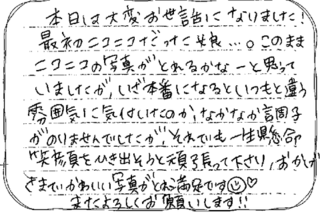 本日は大変お世話になりました!
最初ニコニコだった娘…。このまま
ニコニコの写真がとれるかなーと思って
いましたが、いざ本番になるといつもと違う
雰囲気に気付いたのか、なかなか言周子
がのりませんでしたが、それでも一生懸命
笑顔をひき出そうと頑張って下さい、おかげ
さまでかわいい写真がとれ満足です☺♡
またよろしくお願いします!!